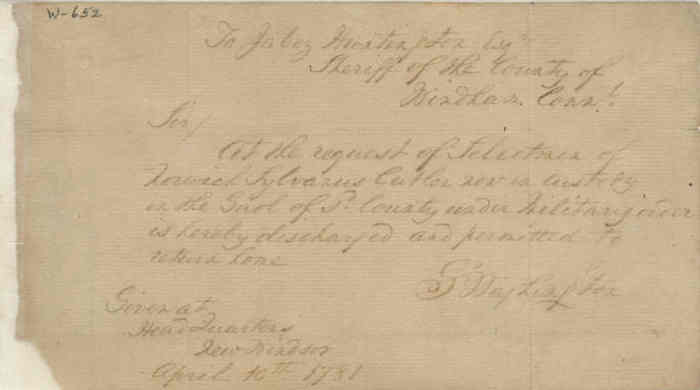 W-652
To Jabez Huntington Esqr
Sheriff of the County of
Windham Connt.
Sir/
At the request of Selectmen of
Norwich Sylvanus Cutler now in custody
in the Goal of sd. County under Military order
is hereby discharged and permitted to
return home
Go Washington
Given at
Head Quarters
New Windsor
April 10th 1781